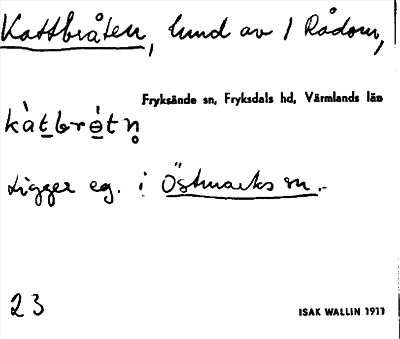 Kattbråten, lund av 1 Rådom,
Fryksände sn, Fryksdals hd, Värmlands län
kàtbrètn̥
Ligger eg. i Östmarks sn.
23
ISAK WALLIN 1911